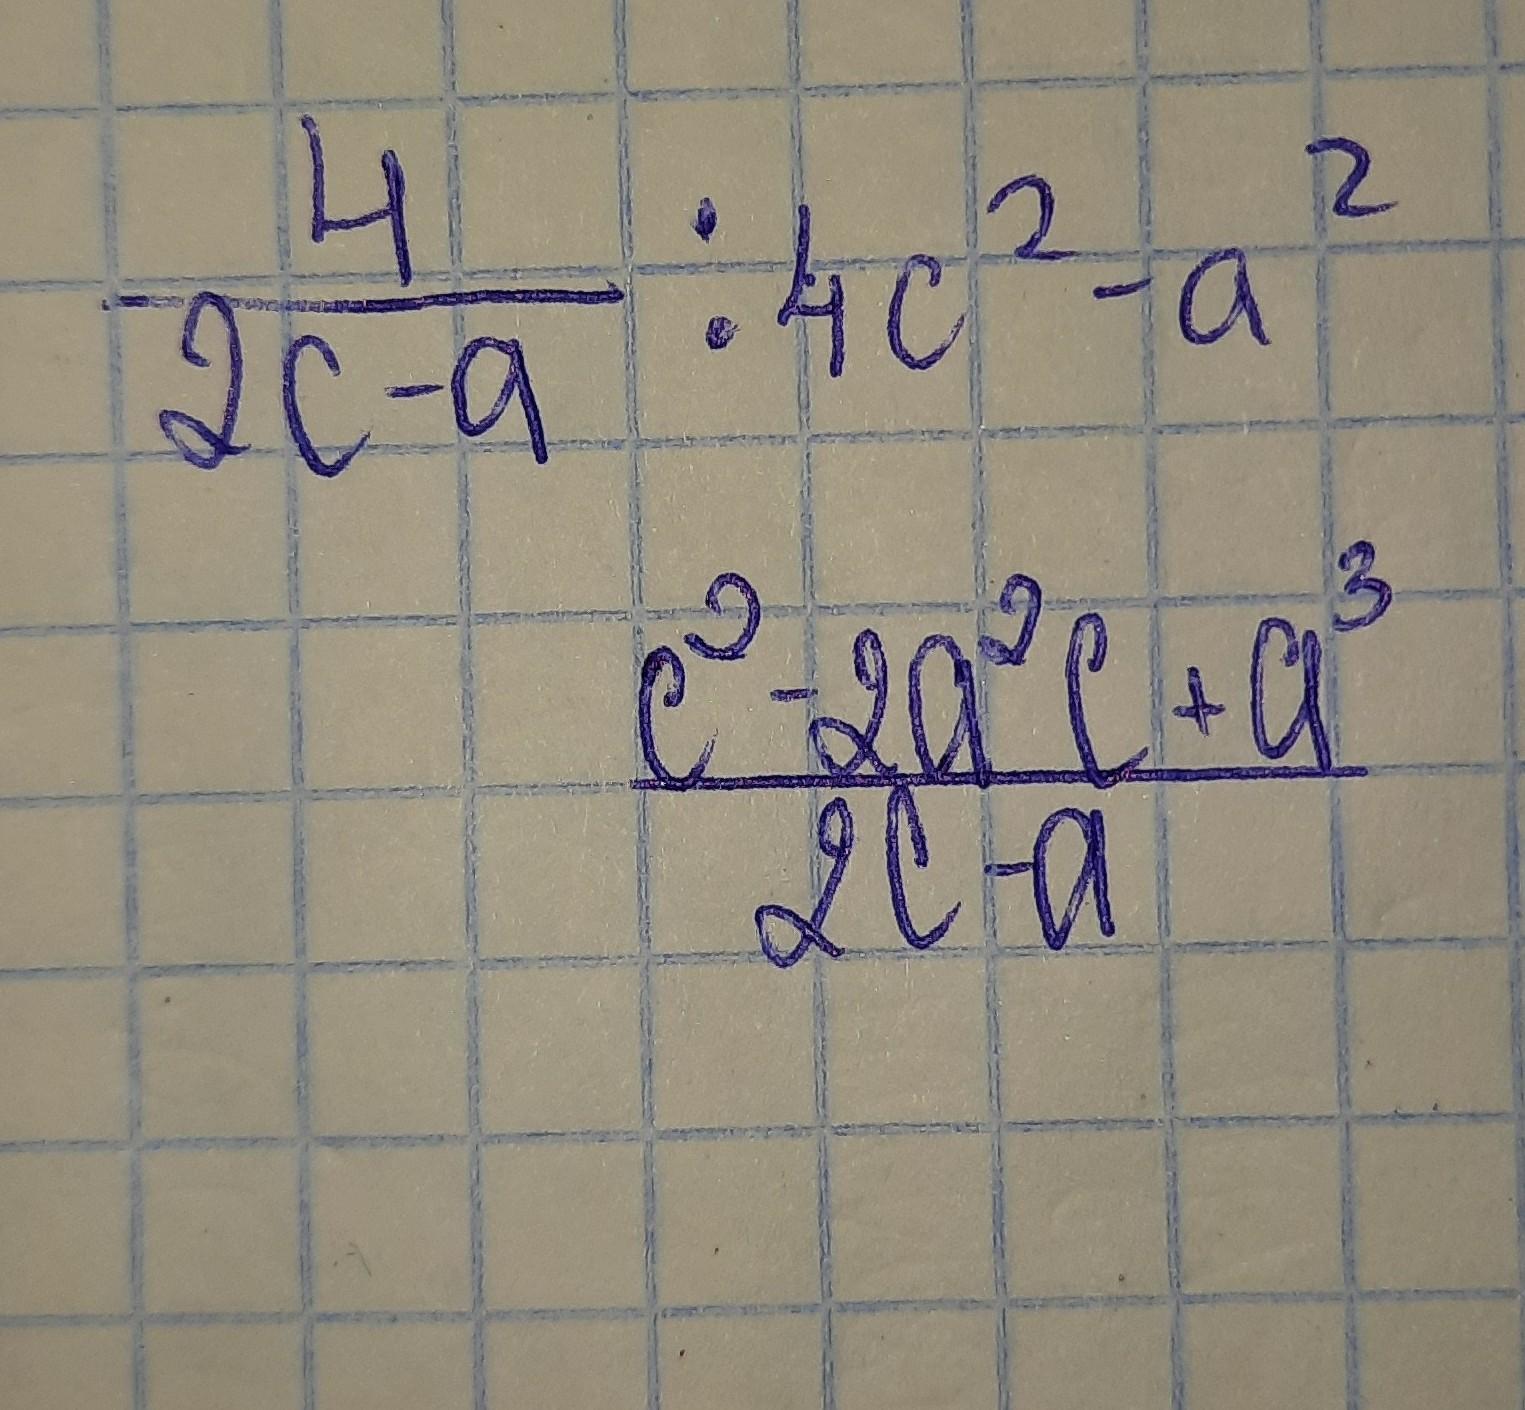 4/(2c-a) : 4c²-a²
(c²-2a²c+a³)/(2c-a)